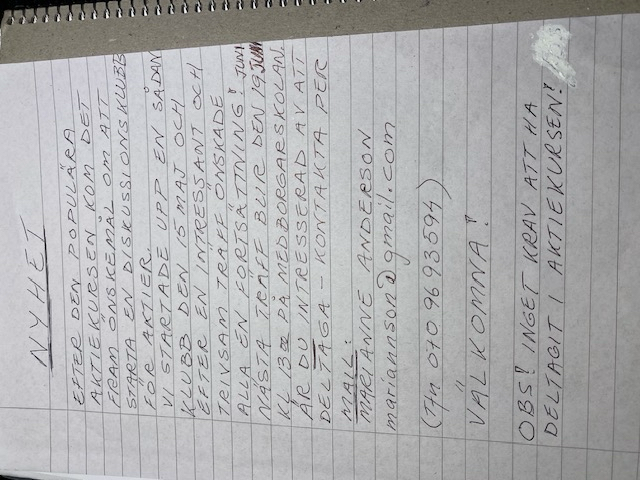 NYHET
EFTER DEN POPULÄRA
AKTIEKURSEN KOM DET
FRAM ÖNSKEMÅL OM ATT
STARTA EN DISKUSSIONSKLUBB
FÖR AKTIER.
VI STARTADE UPP EN SÅDAN
KLUBB DEN 15 MAJ OCH
EFTER EN INTRESSANT OCH
TRIVSAM TRÄFF ÖNSKADE
ALLA EN FORTSÄTTNING!
NÄSTA TRÄFF BLIR DEN 19 JUNI
KL 13 00 PÅ MEDBORGARSKOLAN.
ÄR DU INTRESSERAD AV ATT
DELTAGA - KONTAKTA PER
MAIL:
MARIANNE ANDERSON
mariannson@gmail.com
(Tfn 070 9693594)
VÄLKOMNA!
OBS! INGET KRAV ATT HA
DELTAGIT I AKTIEKURSEN!